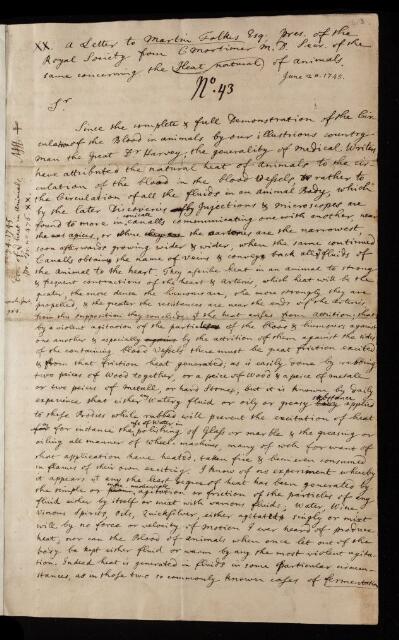 XX. A Letter to Martin Folkes Esq. Pres. of the
Royal Society from C Mortimer M. D. Secr. of the
same concerning the Heat natural of animals.
June 20. 1745.
No. 43
Sr.
Since the complete & full Demonstration of the Cir-
culation of the Blood in animals by our illustrious country-
man the great Dr Harvey, the generality of Medical Writers
have attributed the natural heat of animals to the cir-
culation of the blood in the blood vessels or rather to
the Circulation of all the fluids in an animal Body, which
by the later Discoveries Injections & Microscopes are
found to move in conical canalls communicating one with another, near
the apices, or where the are the narrowest,
soon afterwards growing wider & wider, when the same continued
Canalls obtain the name of veins & convey back all fluids of
the animal to the heart. They ascribe heat in an animal to strong
& frequent contractions of the heart & arteries, which heat will be the
greater, the more dense the humours are, the more strongly they are
propelled, & the greater the resistances are near the ends of the arteries,
from this supposition they conclude, the heat arises from attrition; that
by a violent agitation of the particles of the blood & humours against
one another & especially by the attrition of them against the sides
of the containing blood vessels there must be great friction excited
& from that friction heat generated; as is easily done by rubbing
two peices of Wood together, or a peice of Wood & a peice of metall
or two peices of Metall, or hard Stones, but it is known by daily
experience that either Watery fluid or oily or greasy substance applied
to these Bodies while rubbed will prevent the excitation of heat
for instance use of Water in the polishing of Glass or marble & the greasing or
oiling all manner of wheel machines, many of wch for want of
that application have heated, taken fire & have been consumed
in flames of their own exciting. I know of no experiment whereby
it appears yt any the least degree of heat has been generated by
the simple or agitation or friction of the particles of any
fluid either by itself or mixt with various fluids; Water, Wine
Vinous spirits, Oil, Quicksilver, either agitated singly or mixt
will by no force or velocity of Motion I ever heard of produce
heat, nor can the Blood of animals when once let out of the
body be kept either fluid or warm by any the most violent agita-
tion. Indeed heat is generated in fluids in some particular circum-
stances, as in those two so commonly known cases of fermentation